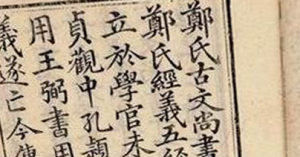 鄭氏古文尚書
鄭氏經義五經
立於學官未
貞觀中孔穎
用王弼書用
義遂亡今傳